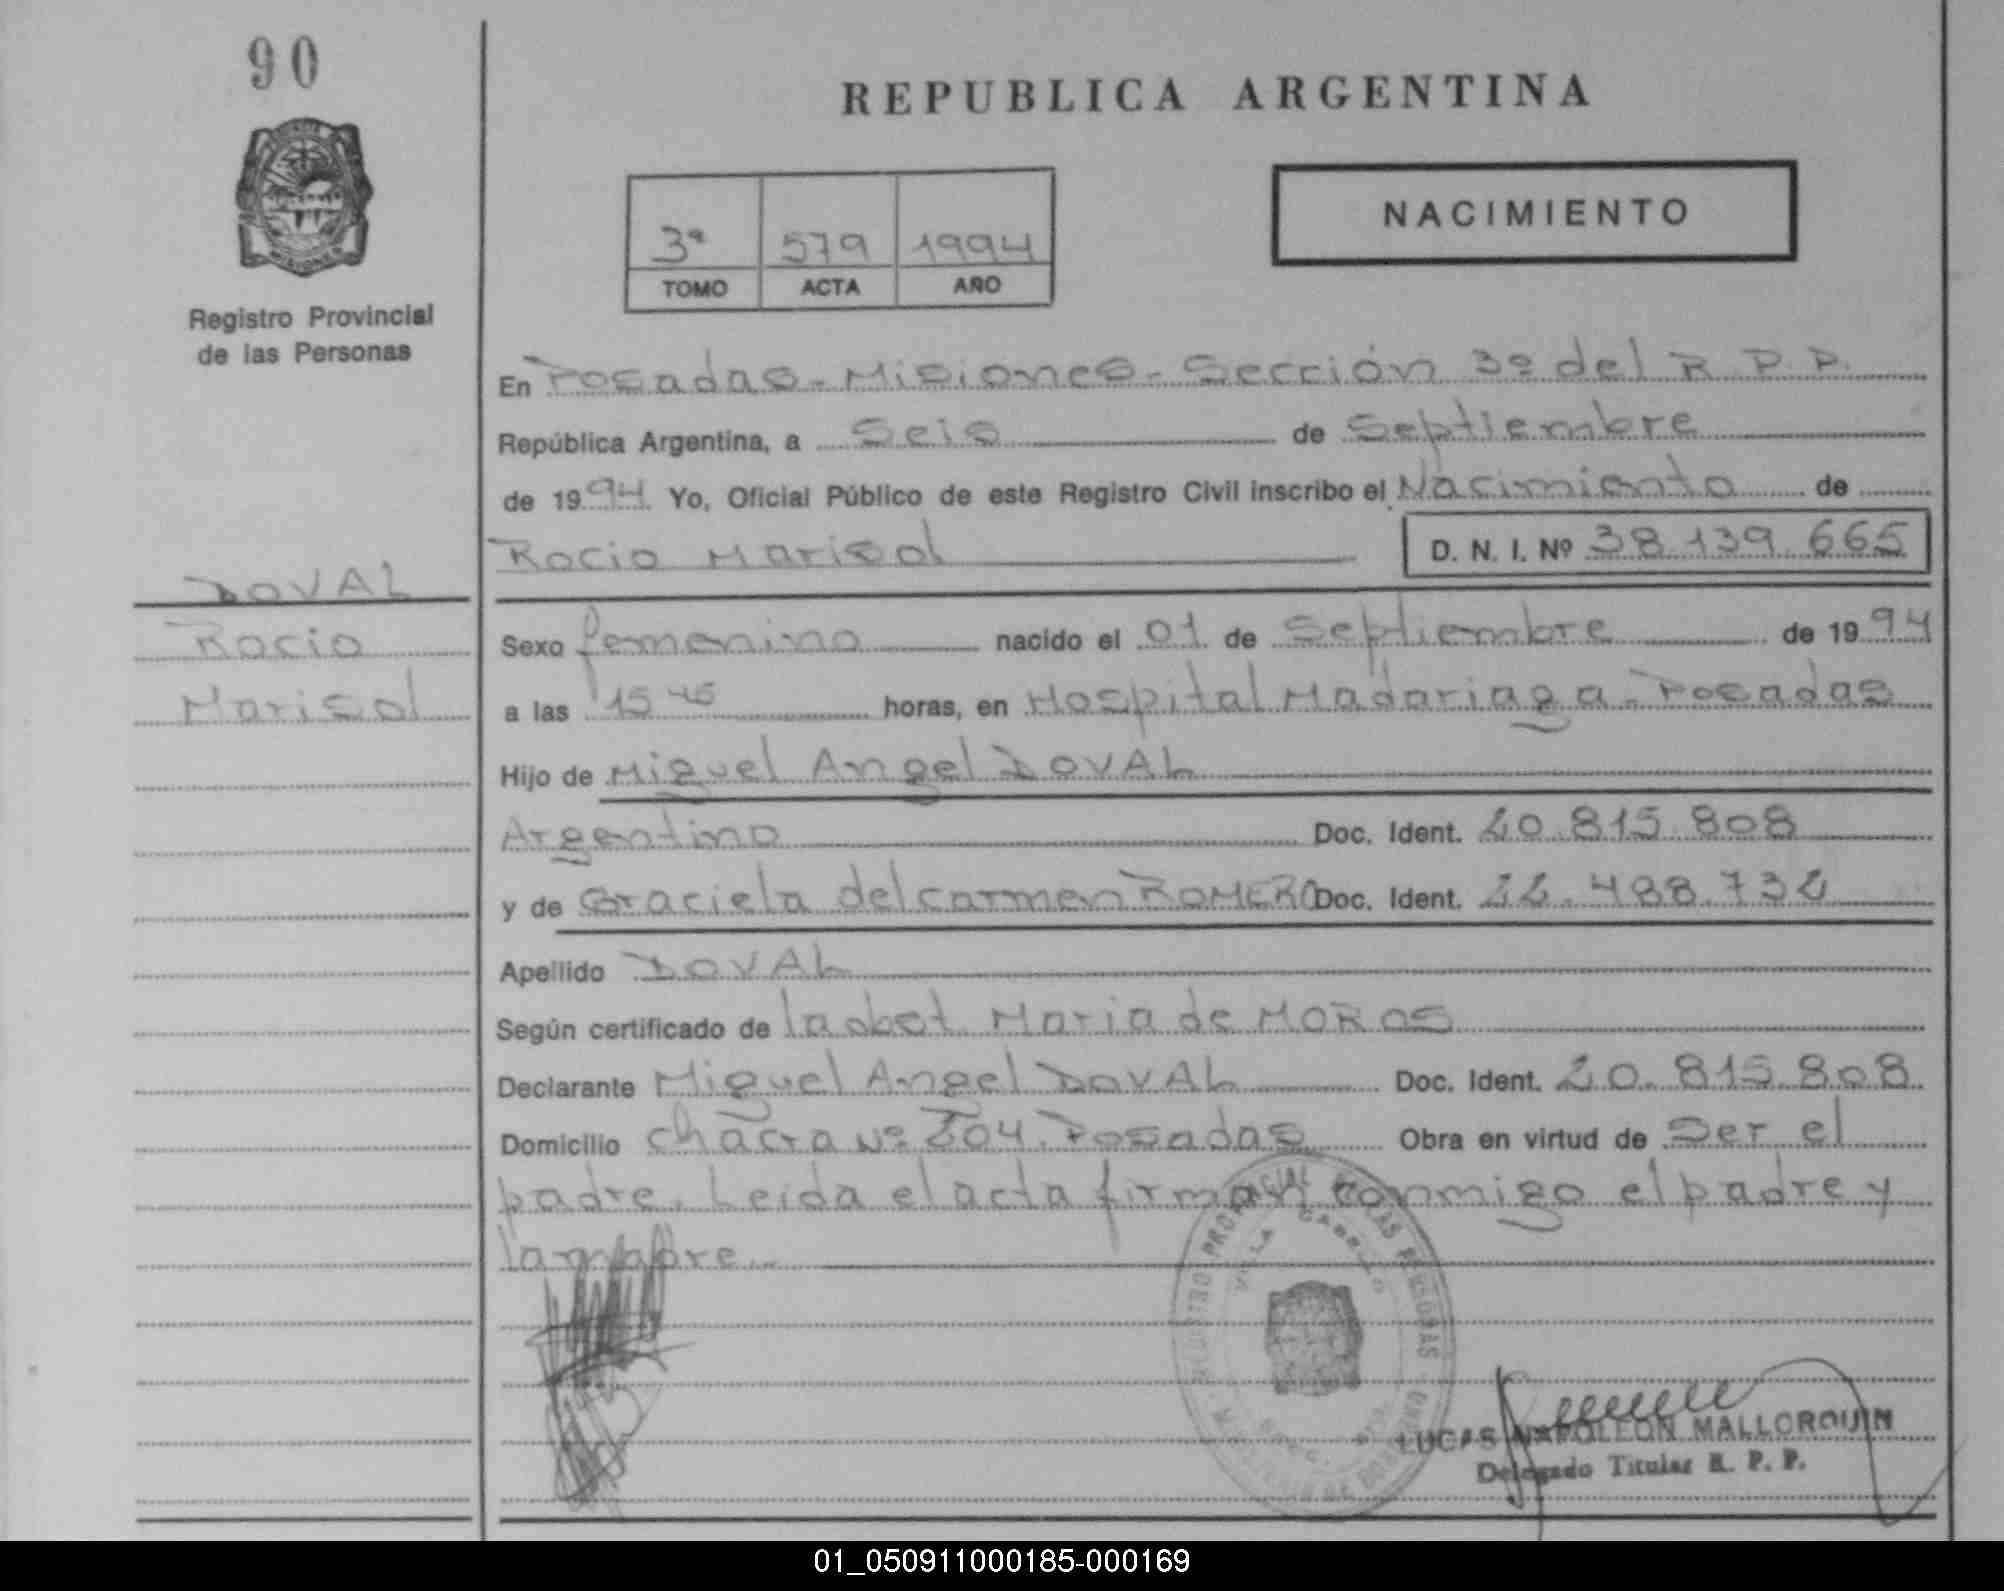 90
REPUBLICA ARGENTINA
NACIMIENTO
3ª 579 1994
TOMO ACTA AÑO
Registro Provincial
de las Personas
En Posadas - Misiones - Sección 3º del R.P.P.
República Argentina, a Seis de Septiembre
de 1994 Yo, Oficial Público de este Registro Civil inscribo el Nacimiento de
Rocio Marisol D. N. I. Nº 38.139.665
DOVAL
Rocio
Marisol
Sexo femenino nacido el 01 de Septiembre de 1994
a las 15 45 horas, en Hospital Madariaga - Posadas
Hijo de Miguel Angel DOVAL
Argentino Doc. Ident. 20.815.808
y de Graciela del carmen ROMERO Doc. Ident. 22.488.732
Apellido DOVAL
Según certificado de la obst. Maria de MOROS
Declarante Miguel Angel DOVAL Doc. Ident. 20.815.808
Domicilio chacra Nº 204. Posadas Obra en virtud de Ser el
padre. Leida el acta firman conmigo el padre y
la madre.
REGISTRO PROVINCIAL DE LAS PERSONAS
VILLA CABELLO
LUCAS NAPOLEON MALLORQUIN
Delegado Titular R. P. P.
01_050911000185-000169